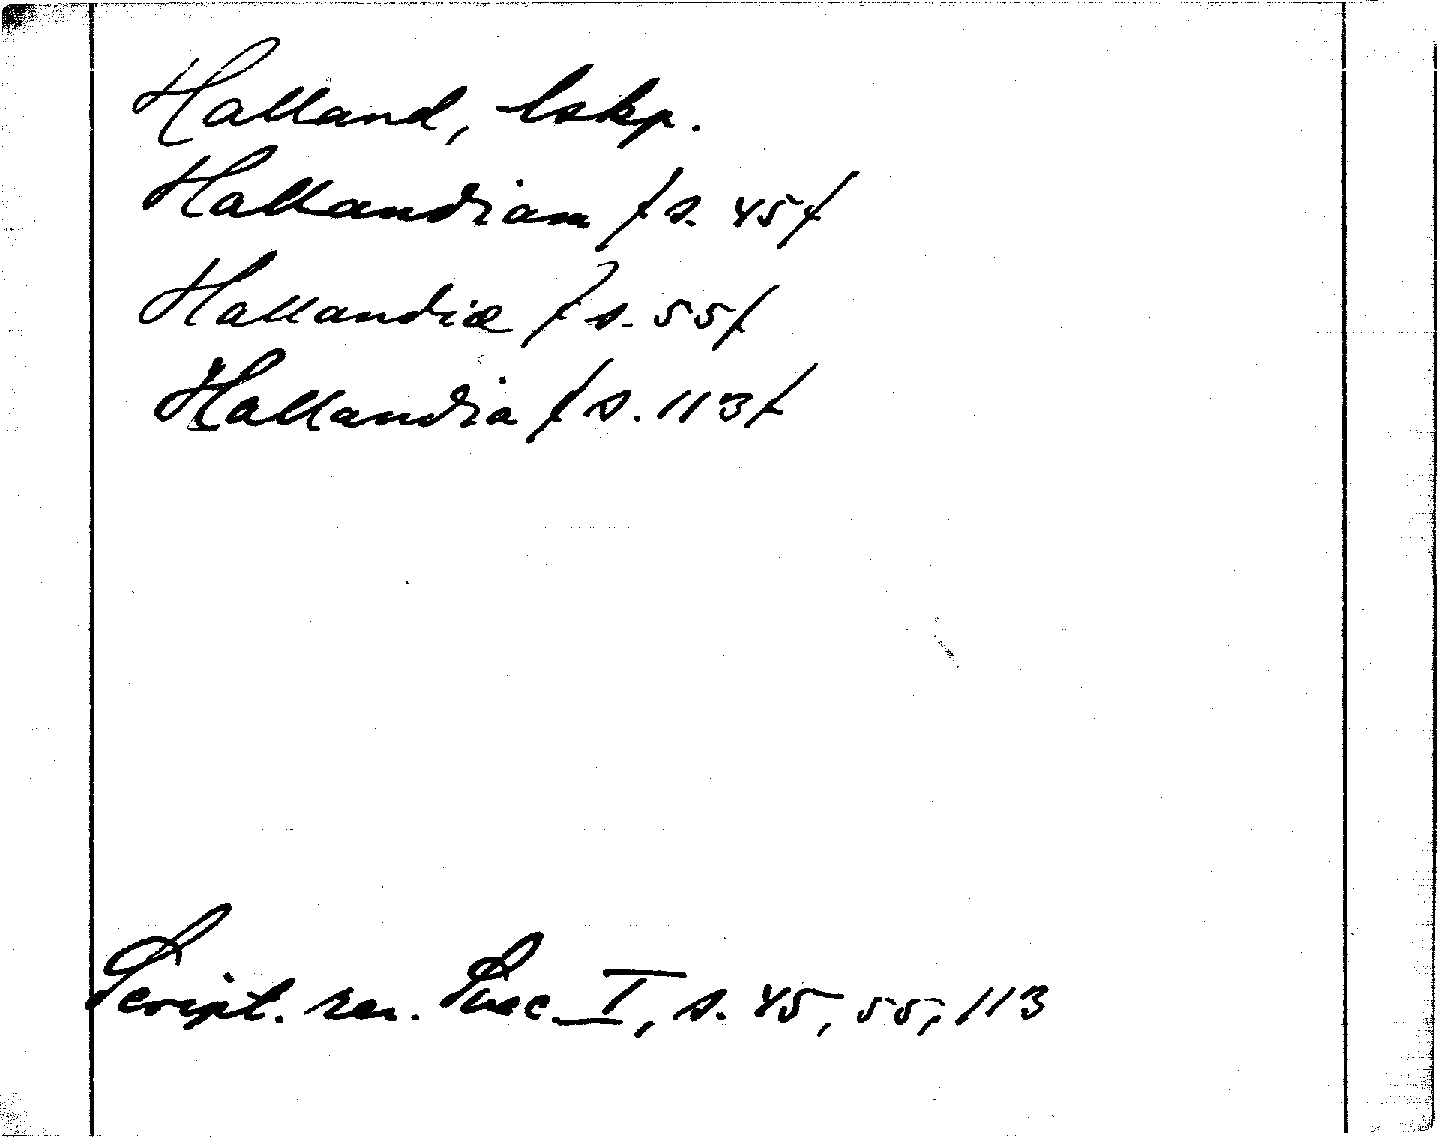 Halland, lskp.
Hallandiam / s. 45 /
Hallandiæ / s. 55 /
Hallandia / s. 113 /
Script. rer. Suec. I, s. 45, 55, 113